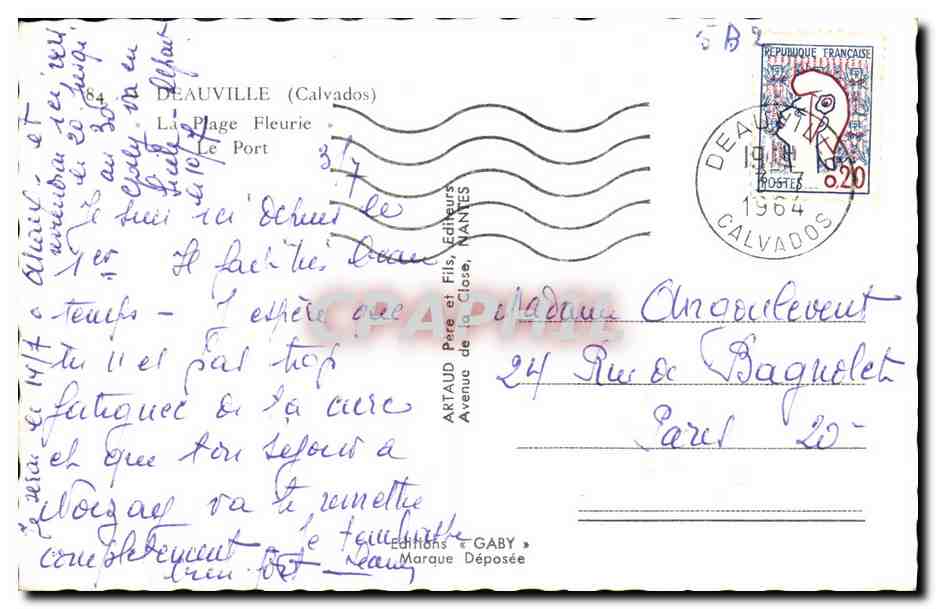 5 B 2
REPUBLIQUE FRANÇAISE
POSTES 0.20
DEAUVILLE
19H
3-7
1964
CALVADOS
84 DEAUVILLE (Calvados)
La Plage Fleurie
Le Port
3/7
Je suis ici depuis le
1er Il fait très beau
temps - J'espère que
tu n'es pas trop
fatiguée de ta cure
et que ton séjour à
Noizay va te remettre
complètement - Je
bien fort
Je serai le 14/7 à et
reviendrai ici
le 20 jusqu'
au 30 -
va en
le 10/7
ARTAUD Père et Fils, Editeurs
Avenue de la Close, NANTES
Madame Angoulevent
24 Rue de Bagnolet
Paris 20
Editions « GABY »
Marque Déposée
CPAPHIL